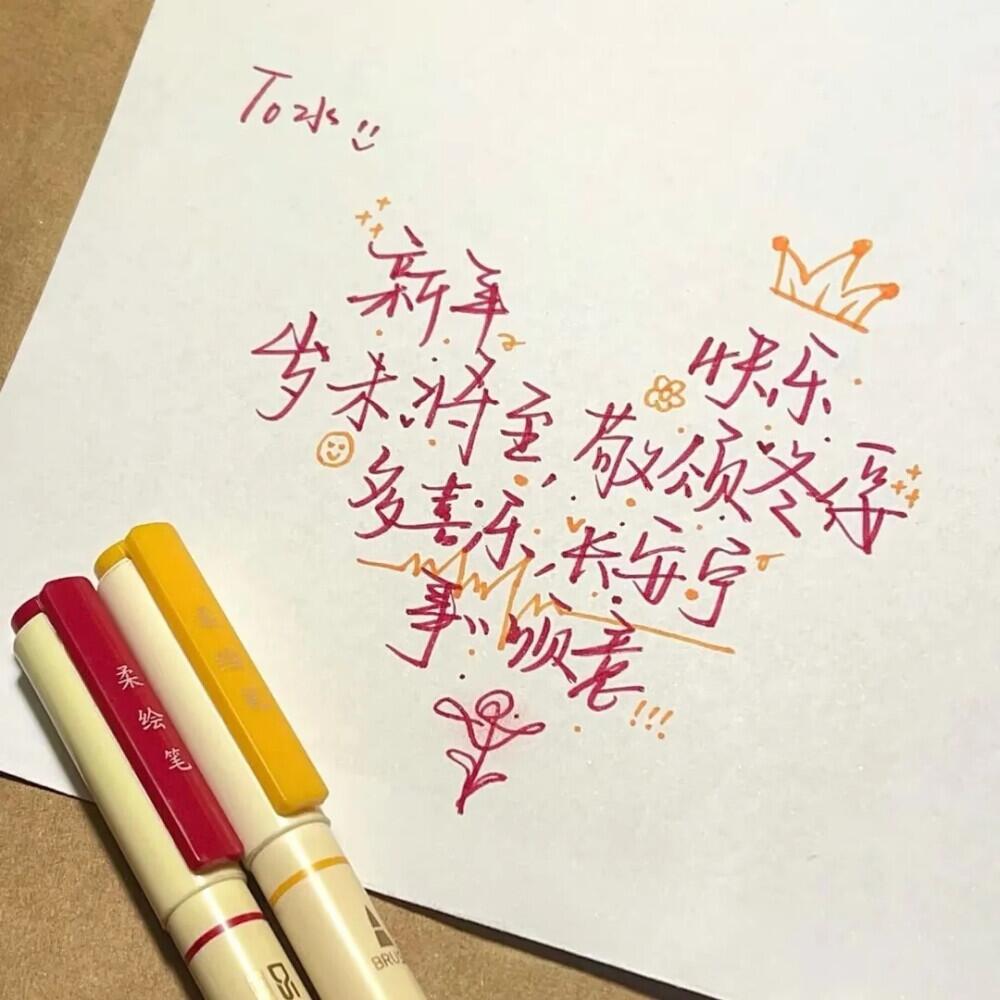 To 水
新年 快乐
岁末将至, 敬颂冬绥
多喜乐, 长安宁
事〃顺意!!!
柔绘笔
柔绘笔
BRUS